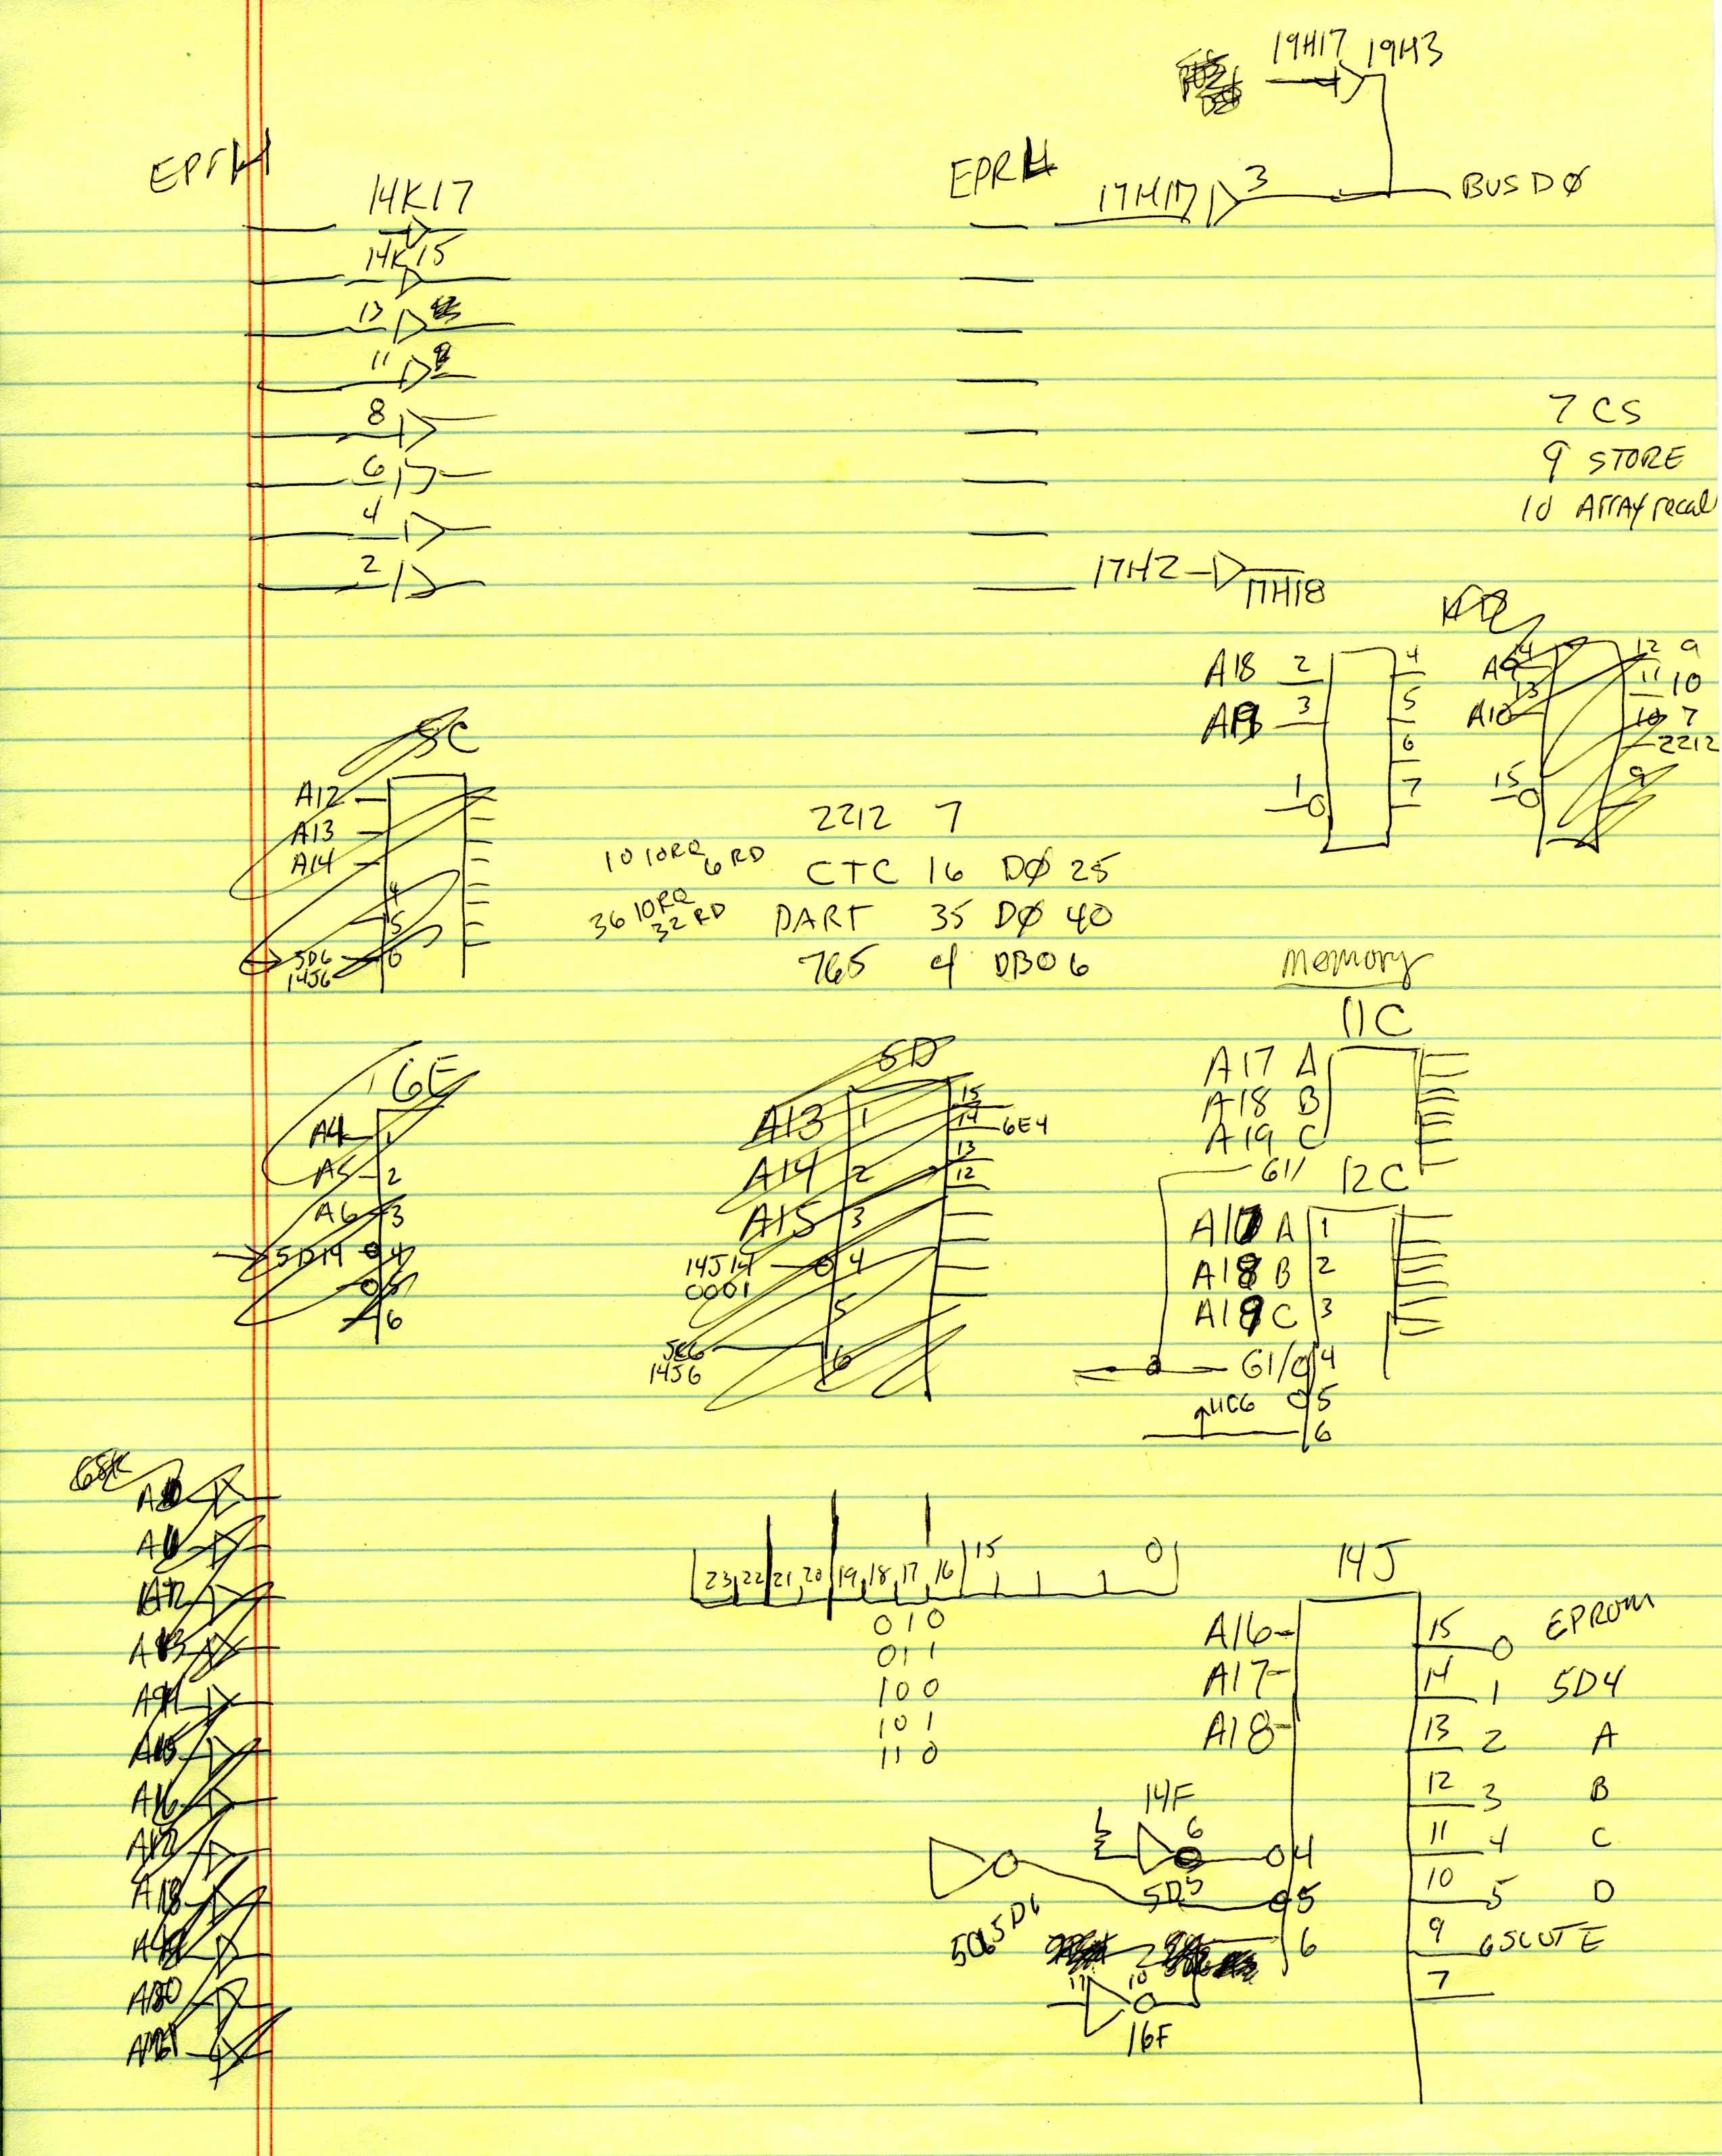 19H17 19H3
EPRH EPRL
14K17 17H17 3 BUS DØ
14K15
13
11
8 7 CS
6 9 STORE
4 10 Array recall
2 17H2 17H18
A18 2 4 A9 14 12 9
A19 3 5 A10 13 11 10
6 10 7
2212
1 7 15 9
5C
A12
A13
A14
4
5
5D6 6
14J6
2212 7
10 IORQ 6 RD CTC 16 DØ 25
36 IORQ 32 RD DART 35 DØ 40
765 4 DB0 6
memory
11C
A17 A
A18 B
A19 C
G1/
6E
A4 1
A5 2
A6 3
5D14 4
5
6
5D
A13 1 15
14 6E4
A14 2 13
12
A15 3
14J14 4
0001
5
5C6 6
14J6
12C
A17 A 1
A18 B 2
A19 C 3
G1/ 4
11C6 5
6
68K
A18
23 22 21 20 19 18 17 16 15 0
010
011
100
101
110
14J
A16 15 0 EPROM
A17 14 1 5D4
A18 13 2 A
12 3 B
11 4 C
10 5 D
9 6 SCUT E
7
14F
6 4
5D5 5
5C6 5D6 6
11 10
16F